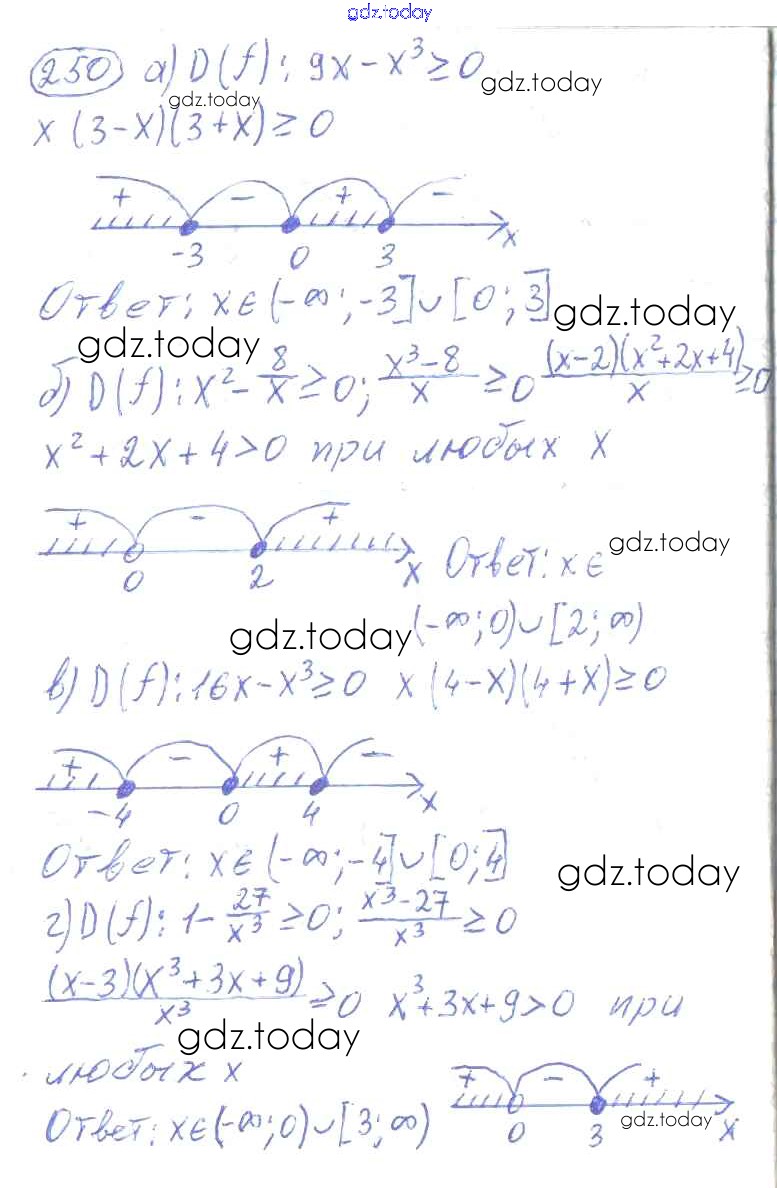 gdz.today
250 а) D(f): 9x – x³ ≥ 0
gdz.today
gdz.today
x (3–x)(3+x) ≥ 0
+ – + –
-3 0 3 x
Ответ: x ∈ (–∞; –3] ∪ [0; 3]
gdz.today
gdz.today
б) D(f): x² – 8/x ≥ 0; (x³–8)/x ≥ 0 (x–2)(x²+2x+4)/x ≥ 0
x² + 2x + 4 > 0 при любых x
+ – +
0 2 x Ответ: x ∈
gdz.today
(–∞; 0) ∪ [2; ∞)
gdz.today
в) D(f): 16x – x³ ≥ 0 x (4–x)(4+x) ≥ 0
+ – + –
–4 0 4 x
Ответ: x ∈ (–∞; –4] ∪ [0; 4]
gdz.today
г) D(f): 1 – 27/x³ ≥ 0; (x³–27)/x³ ≥ 0
(x–3)(x³+3x+9)/x³ ≥ 0 x³+3x+9 > 0 при
gdz.today
любых x
+ – +
0 3 x
gdz.today
Ответ: x ∈ (–∞; 0) ∪ [3; ∞)